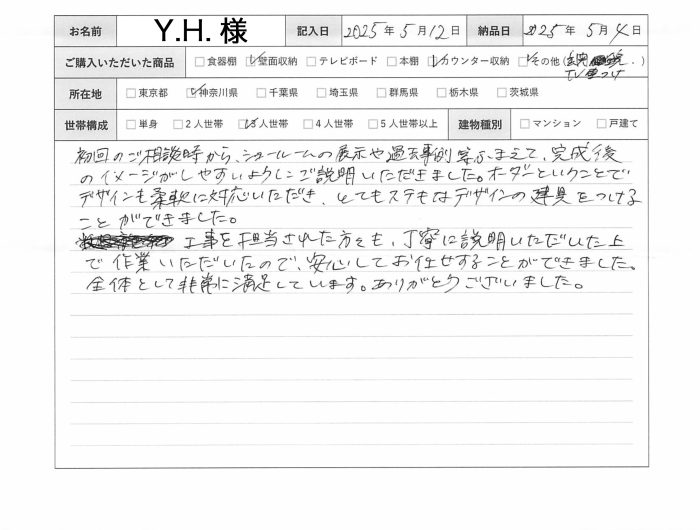 お名前 Y.H. 様 記入日 2025年5月12日 納品日 2025年5月4日
ご購入いただいた商品 □食器棚 ☑壁面収納 □テレビボード □本棚 ☑カウンター収納 ☑その他( TV . )
所在地 □東京都 ☑神奈川県 □千葉県 □埼玉県 □群馬県 □栃木県 □茨城県
世帯構成 □単身 □2人世帯 ☑3人世帯 □4人世帯 □5人世帯以上 建物種別 □マンション □戸建て
初回のご相談時から、ショールームの展示や過去事例等ふまえて、完成後
のイメージがしやすいようにご説明いただきました。オーダーということで
デザインも柔軟に対応いただき、とてもステキなデザインの建具をつける
ことができました。
工事を担当された方も、丁寧に説明いただいた上
で作業いただいたので、安心してお任せすることができました。
全体として非常に満足しています。ありがとうございました。